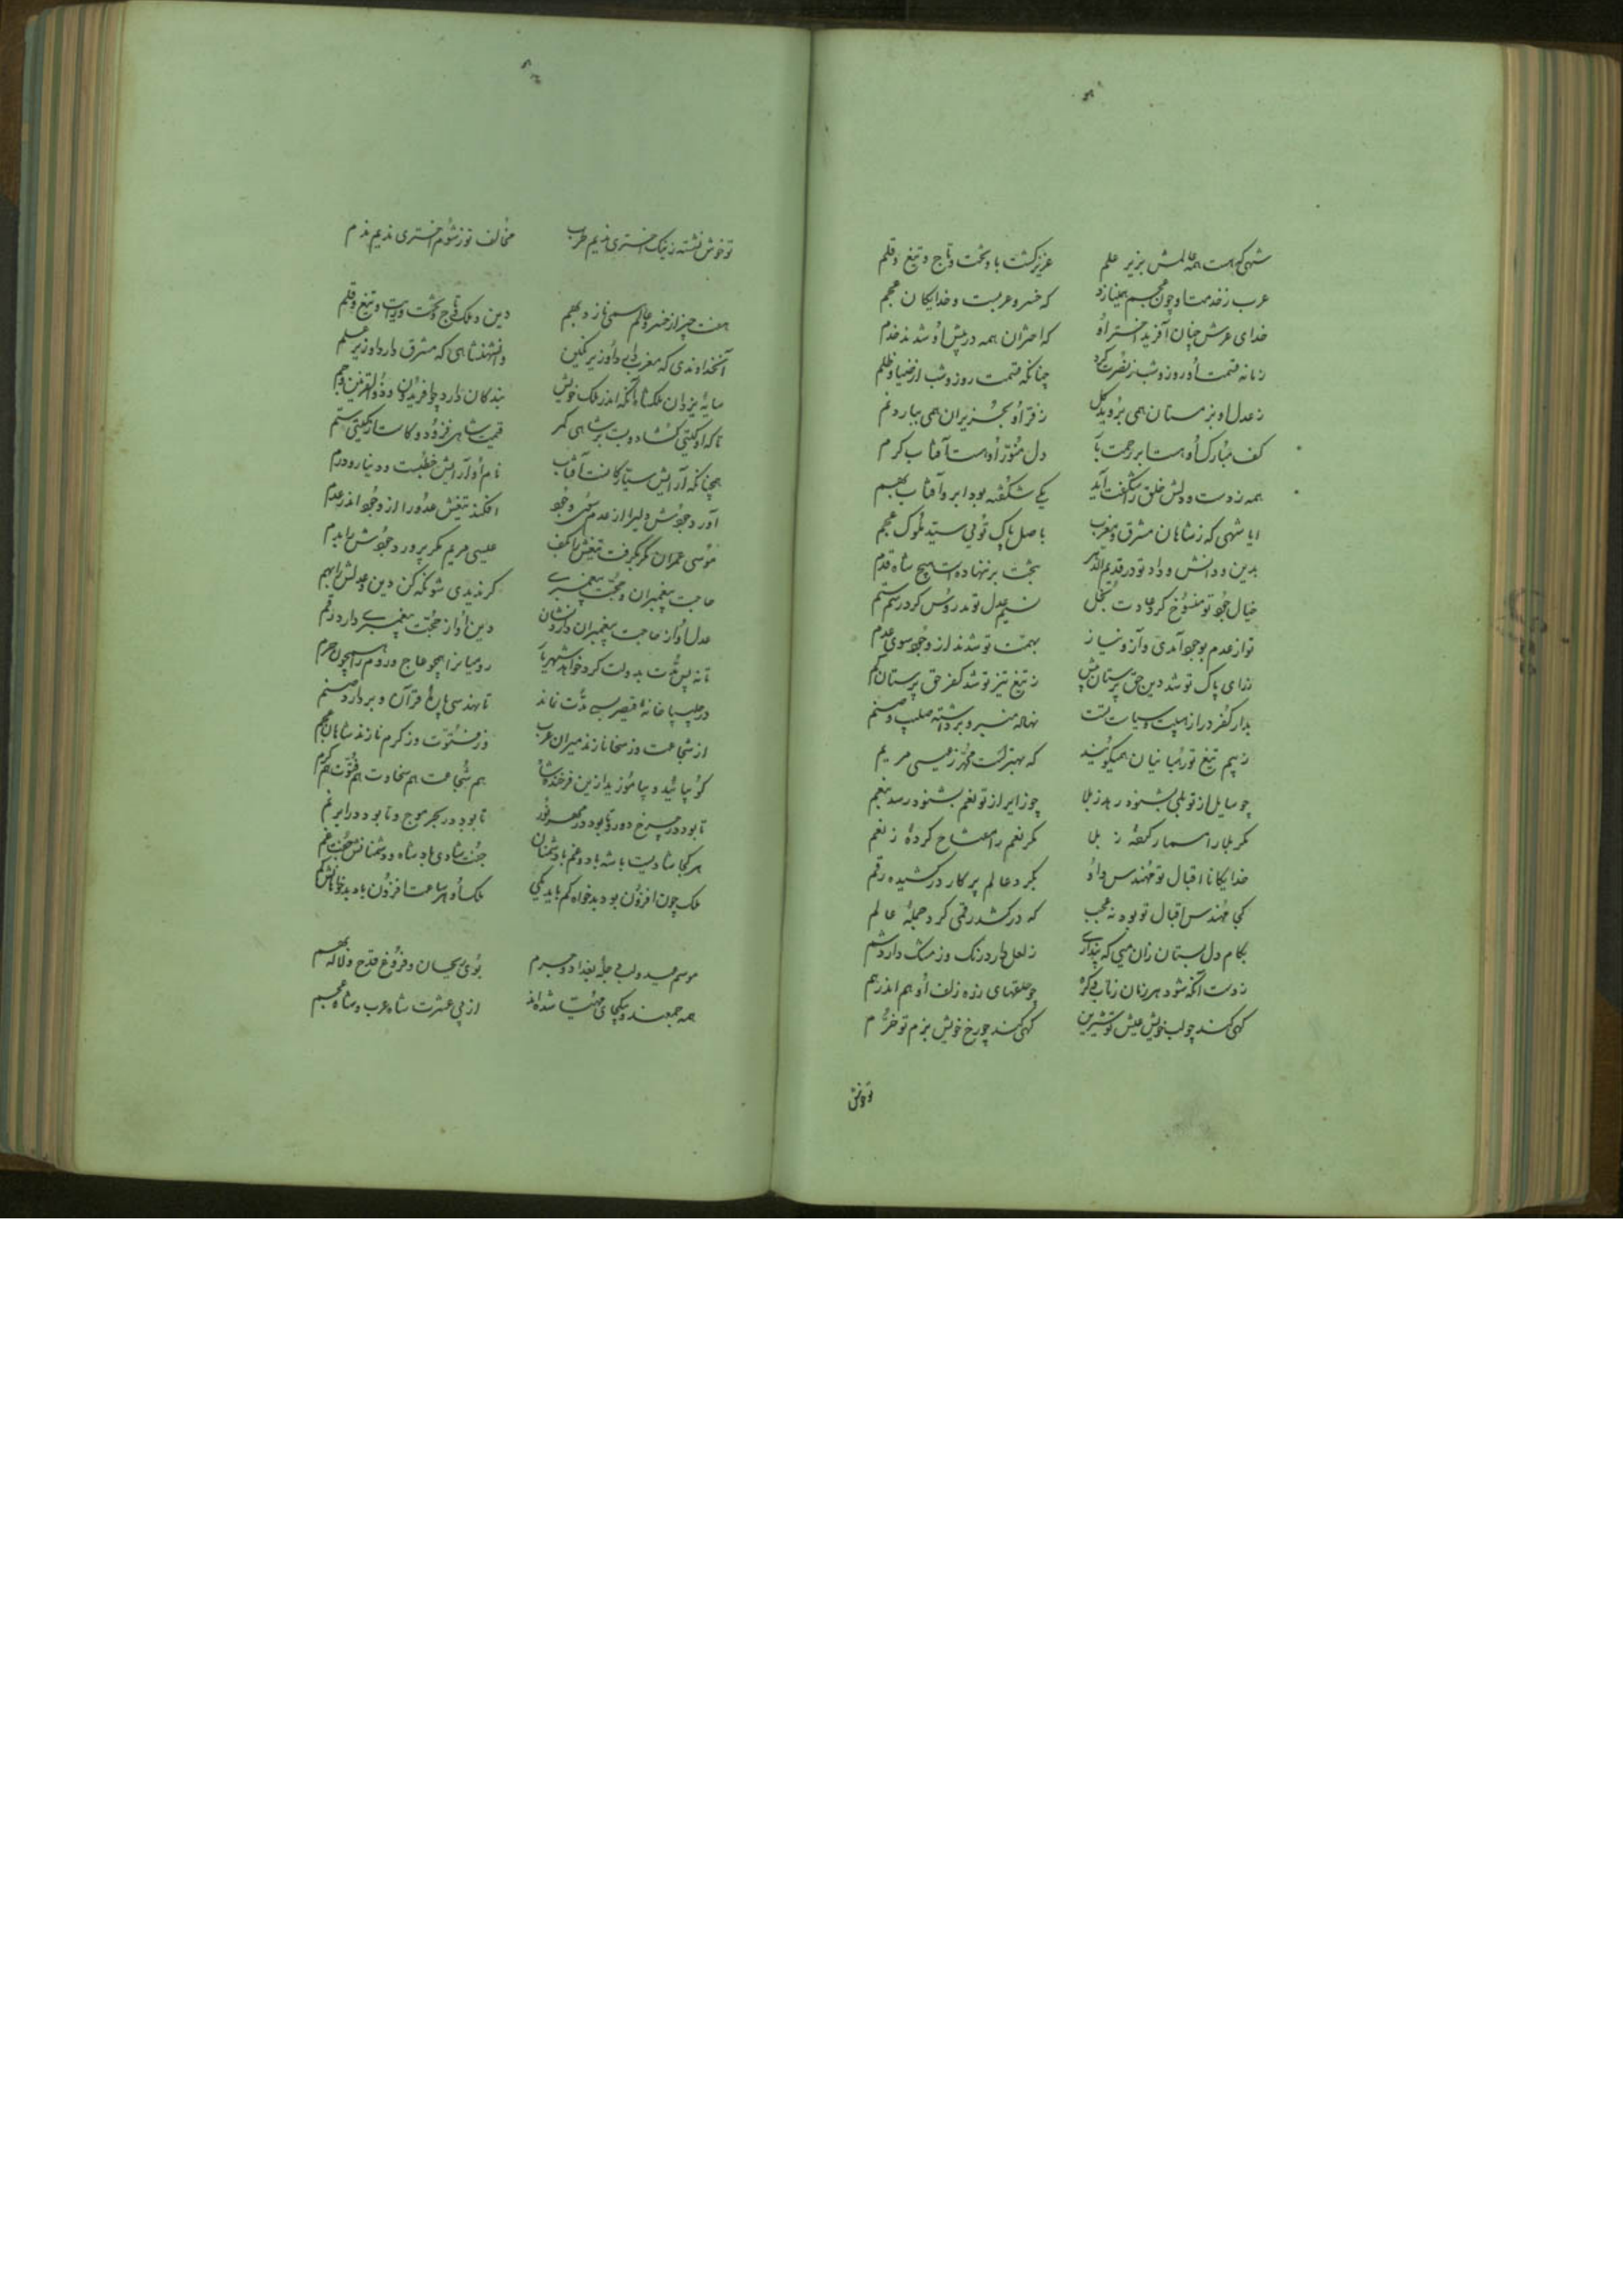 شهی که هست همه عالمش بزیر علم عزیز گشت باو تخت و تاج و تیغ و قلم
عرب ز خدمت او چون عجم همینازد که خسرو عربست و خدایکان عجم
خدای عرش چنان آفرید اختر او که اختران همه در پیش او شدند خدم
زمانه قسمت او روز و شب ز نصرت کرد چنانکه قسمت روز و شب از ضیا و ظلم
ز عدل او بزمستان همی بروید گل ز فر او بحزیران همی ببارد نم
کف مبارک او هست ابر رحمت بار دل منور او هست آفتاب کرم
همه ز دست و دلش خلق را شگفت آید یکی شگفته بود ابر و آفتاب بهم
ایا شهی که ز شاهان مشرق و مغرب باصل پاک توئی سید ملوک عجم
بدین و دانش و داد تو در قدیم الدهر بتخت بر ننهاده است هیچ شاه قدم
خیال جود تو منسوخ کرد عادت بخل نسیم عدل تو مدروس کرد رسم ستم
تو از عدم بوجود آمدی و آز و نیاز بهمت تو شدند از وجود سوی عدم
ز رای پاک تو شد دین حق پرستان بیش ز تیغ تیز تو شد کفر حق پرستان کم
بدار کفر در از هیبت و سیاست تست نهاده منبر و برداشته صلیب و صنم
ز بیم تیغ تو رهبانیان همیگویند که بهترست محمد ز عیسی مریم
چو سایل از تو بلی بشنود رهد ز بلا چو زایر از تو نعم بشنود رسد بنعم
مگر بلا را مسمار کردهٔ ز بلی مگر نعم را مفتاح کردهٔ ز نعم
خدایکانا اقبال تو مهندس وار بگرد عالم پرکار درکشیده رقم
کجا مهندس اقبال تو بود نه عجب که درکشد رقمی گرد جملهٔ عالم
بکام دل بستان زان میی که پنداری ز لعل دارد رنگ و ز مشک دارد شم
ز دست آنکه شود هر زمان ز تاب و گره چو حلقهای زره زلف او هم اندر هم
گهی کند چو لب خویش عیش تو شیرین گهی کند چو رخ خویش بزم تو خرم
تو خوش
تو خوش نشسته ز نیک اختری ندیم طرب مخالف تو ز شوم اختری ندیم ندم
هفت چیز از خسرو عالم همی نازد بهم دین و ملک و تاج و تخت و رایت و تیغ و قلم
آنخداوندی که مغرب دارد او زیر نگین وانشهنشاهی که مشرق دارد او زیر علم
سایهٔ یزدان ملکشاه آنکه اندر ملک خویش بندگان دارد چو افریدون و ذوالقرنین و جم
تا که او گیتی گشاد و بست بر شاهی کمر قیمت شاهی فزود و کاست از گیتی ستم
همچنانکه آرایش سیارگانست آفتاب نام او آرایش خطبست و دینار و درم
آورد جودش ولی را از عدم سوی وجود افکند تیغش عدو را از وجود اندر عدم
موسی عمران مگر بگرفت تیغش را بکف عیسی مریم مگر پرورد جودش را بدم
حاجت پیغمبران و حجت پیغمبری گر ندیدی شو نگه کن دین و عدلش را بهم
عدل او از حاجت پیغمبران دارد نشان دین او از حجت پیغمبری دارد رقم
تا نه بس مدت بدولت کرد خواهد شهریار رومیانرا همچو حاج و روم را همچون حرم
در چلیپا خانهٔ قیصر بسی مدت نماند تا مهندسی پارهٔ قرآن و بردارد صنم
از شجاعت وز سخا نازند میران عرب وز فتوت وز کرم نازند شاهان عجم
گو بیائید و بیاموزید ازین فرخنده شاه هم شجاعت هم سخاوت هم فتوت هم کرم
تا بود در چرخ دور و تا بود در مهر نور تا بود در بحر موج و تا بود در ابر نم
هر کجا شادیست با شه باد و غم با دشمنان جفت شادی باد شاه و دشمنانش جفت غم
ملک چون افزون بود بدخواه کم باید همی ملک او هر ساعت افزون باد بدخواهانش کم
موسم عید و لب دجلهٔ بغداد و حرم بوی ریحان و فروغ قدح و لاله بهم
همه جمعند و بیکجای مهیا شده‌اند از پی عشرت شاه عرب و شاه عجم